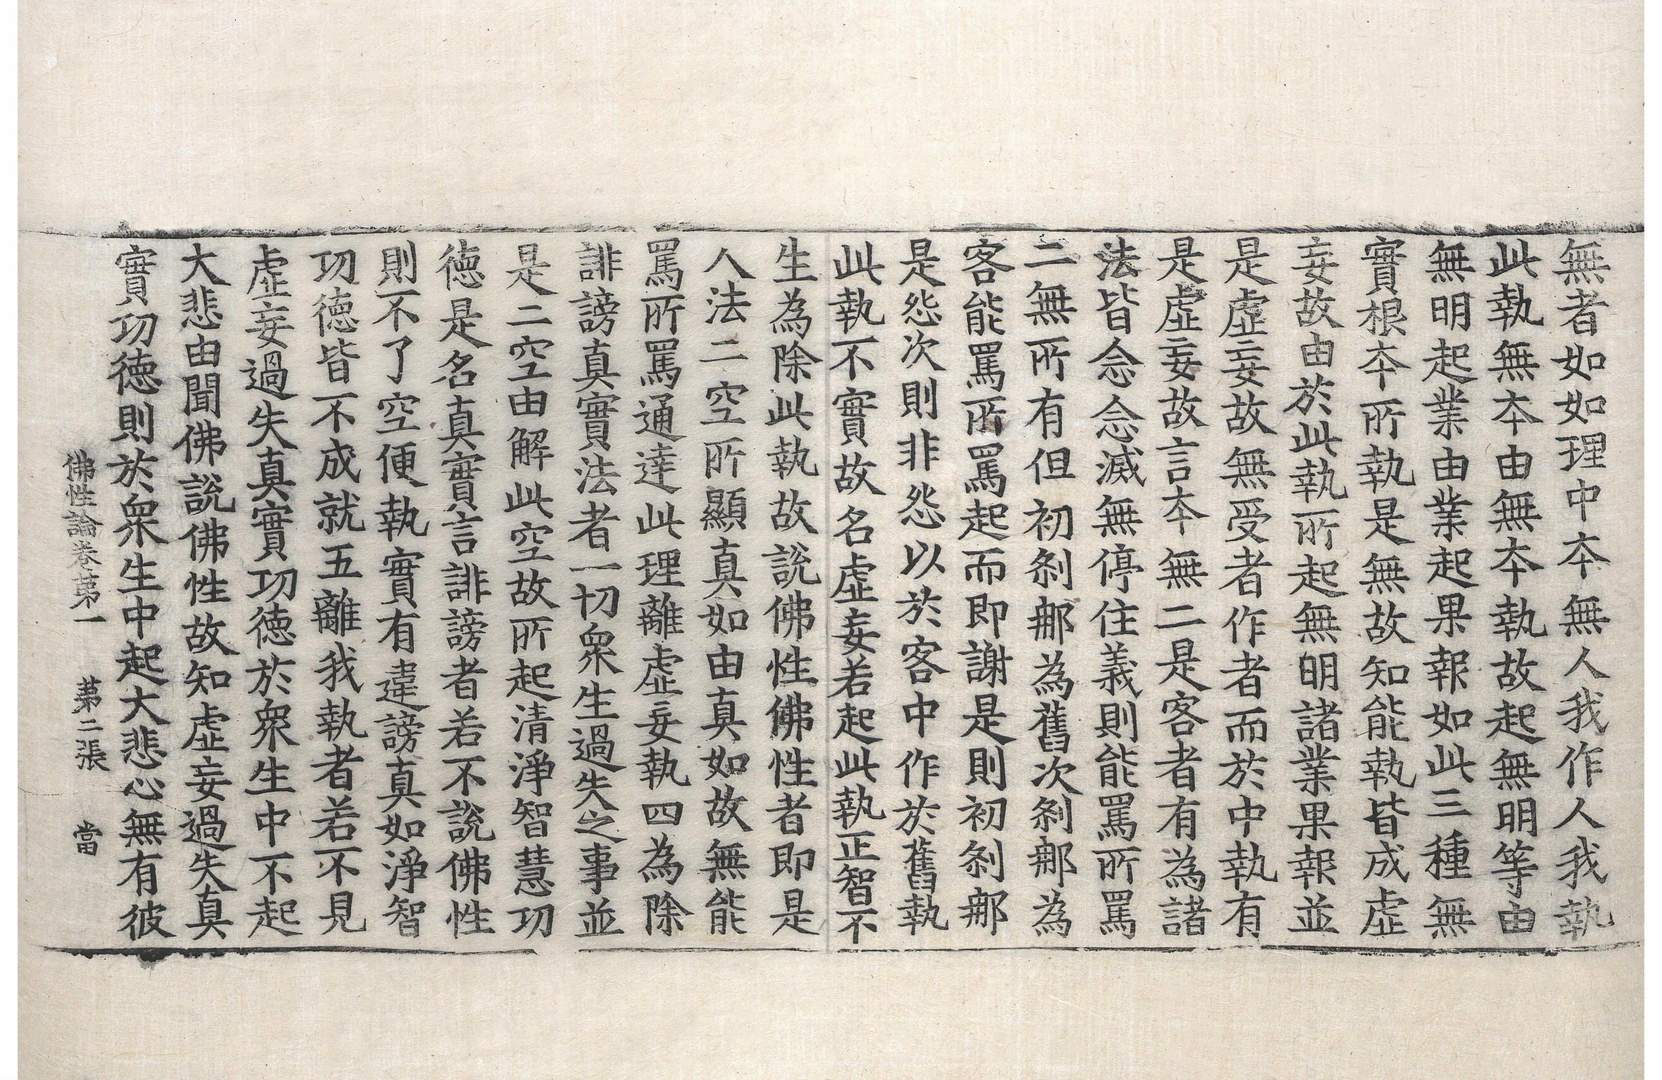 無者如如理中本無人我作人我執
此執無本由無本執故起無明等由
無明起業由業起果報如此三種無
實根本所執是無故知能執皆成虛
妄故由於此執所起無明諸業果報並
是虛妄故無受者作者而於中執有
是虛妄故言本無二是客者有為諸
法皆念念滅無停住義則能罵所罵
二無所有但初剎那為舊次剎那為
客能罵所罵起而即謝是則初剎那
是怨次則非怨以於客中作於舊執
此執不實故名虛妄若起此執正智不
生為除此執故說佛性佛性者即是
人法二空所顯真如由真如故無能
罵所罵通達此理離虛妄執四為除
誹謗真實法者一切衆生過失之事並
是二空由解此空故所起清淨智慧功
德是名真實言誹謗者若不說佛性
則不了空便執實有違謗真如淨智
功德皆不成就五離我執者若不見
虛妄過失真實功德於衆生中不起
大悲由聞佛說佛性故知虛妄過失真
實功德則於衆生中起大悲心無有彼
佛性論卷第一 第二張 當